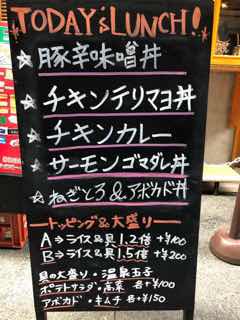 TODAY'S LUNCH!
☆豚辛味噌丼
☆チキンテリマヨ丼
☆チキンカレー
☆サーモンゴマダレ丼
☆ねぎとろ&アボカド丼
トッピング&大盛り
A→ライス&具1.2倍 +¥100
B→ライス&具1.5倍 +¥200
具の大盛り・温泉玉子
ポテトサラダ・高菜 各+¥100
アボカド・キムチ 各+¥150